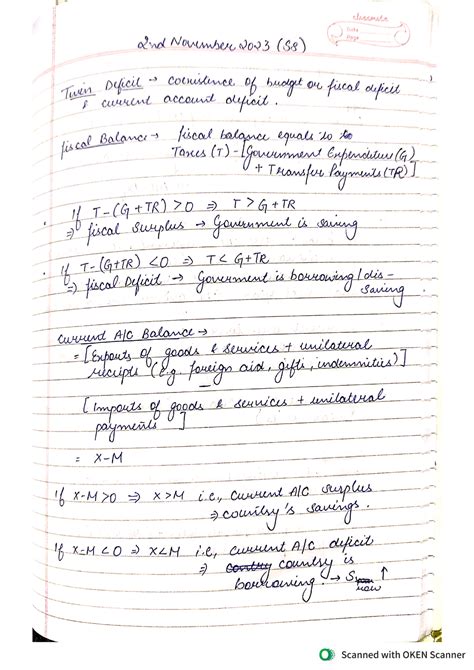 classmate
Date
Page
2nd November 2023 (S8)
Twin Deficit → coexistence of budget or fiscal deficit
& current account deficit.
fiscal Balance → fiscal balance equals to to
Taxes (T) - [Government Expenditure (G)
+ Transfer Payments (TR)]
• If T-(G+TR) > 0 ⇒ T > G+TR
⇒ fiscal Surplus → Government is saving
• if T-(G+TR) < 0 ⇒ T < G+TR
⇒ fiscal Deficit → Government is borrowing / dis-
saving.
Current A/C Balance →
= [Exports of goods & services + unilateral
receipts (e.g. foreign aid, gifts, indemnities)]
–
[Imports of goods & services + unilateral
payments ]
= X-M
If X-M>0 ⇒ X>M i.e., Current A/C Surplus
⇒ country's savings.
If X-M<0 ⇒ X<M i.e, current A/C deficit
⇒ country country is
borrowing. → S row ↑
Scanned with OKEN Scanner